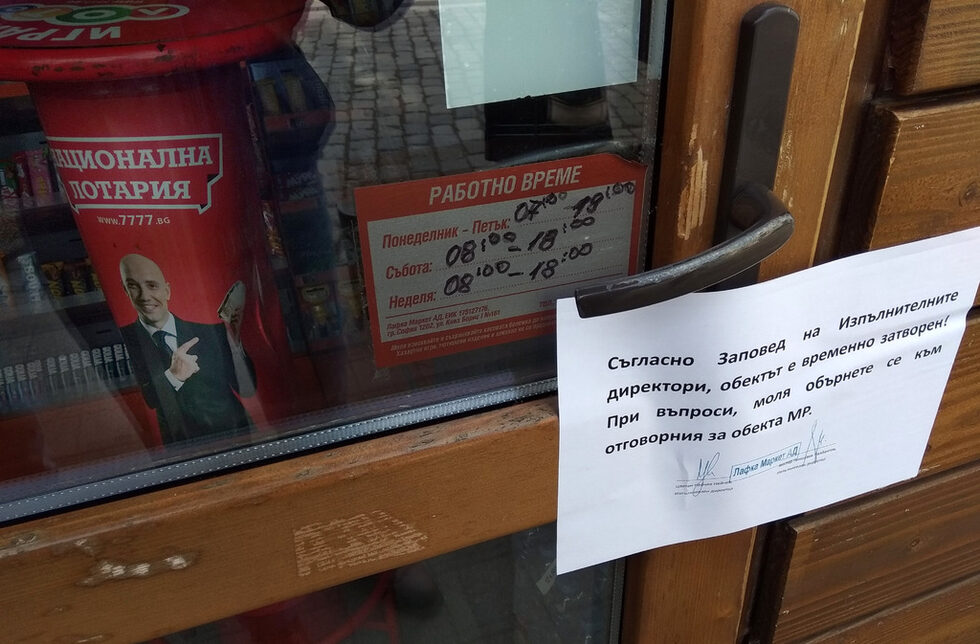 ИГРАЙ
АЦИОНАЛНА
ЛОТАРИЯ
WWW.7777.BG
РАБОТНО ВРЕМЕ
Понеделник - Петък: 07:00 - 18:00
Събота: 08:00 - 18:00
Неделя. 08:00 - 18:00
Лафка Маркет АД, ЕИК 175127176,
гр. София 1202, ул. Княз Борис I №161
Съгласно Заповед на Изпълнителните
директори, обектът е временно затворен!
При въпроси, моля обърнете се към
отговорния за обекта МР.
Лафка Маркет АД